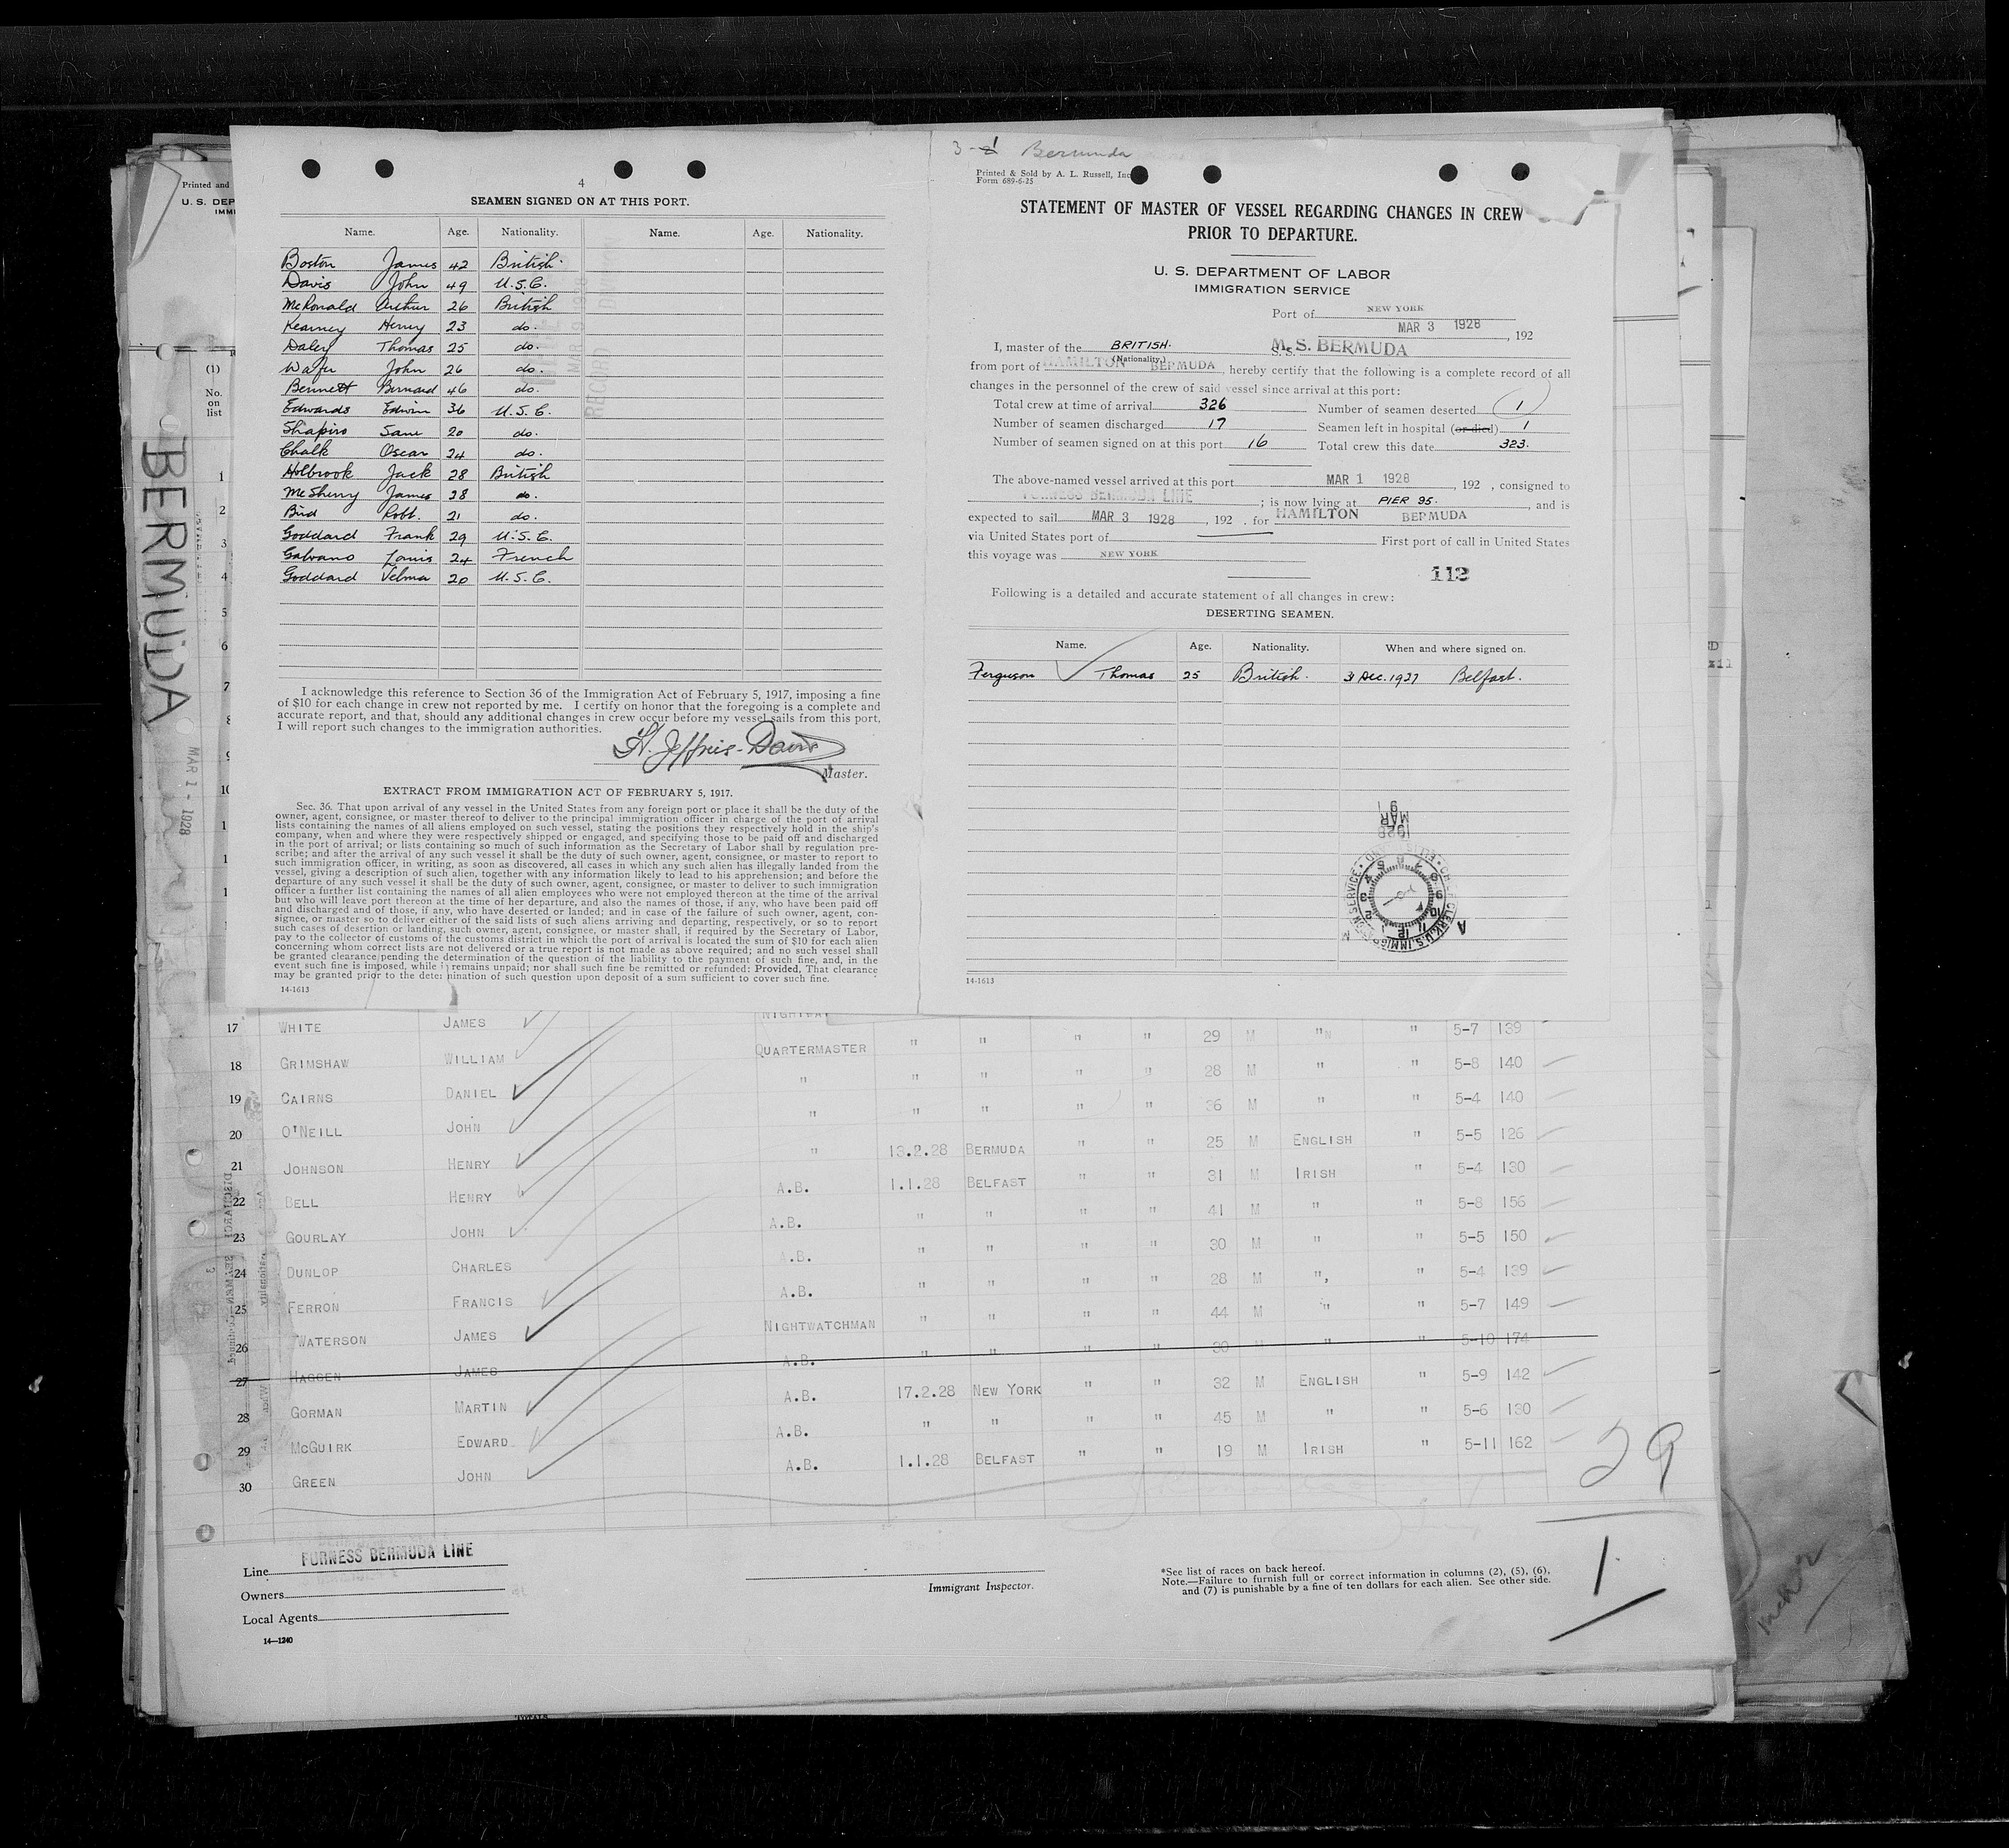 Printed and
U. S. DEP
IMMI
(1)
No.
on
list
1
2
3
4
5
6
7
8
9
10
BERMUDA
MAR 1 - 1928
4
SEAMEN SIGNED ON AT THIS PORT.
Name. Age. Nationality. Name. Age. Nationality.
Boston James 42 British.
Davis John 49 U.S.C.
McRonald Arthur 26 British
Kearney Henry 23 do.
Daley Thomas 25 do.
Wafer John 26 do.
Bennett Bernard 46 do.
Edwards Edwin 36 U.S.C.
Shapiro Sam 20 do.
Chalk Oscar 24 do.
Holbrook Jack 28 British
McSherry James 28 do.
Bird Robt. 21 do.
Goddard Frank 29 U.S.C.
Galvano Louis 24 French
Goddard Velma 20 U.S.C.
I acknowledge this reference to Section 36 of the Immigration Act of February 5, 1917, imposing a fine
of $10 for each change in crew not reported by me. I certify on honor that the foregoing is a complete and
accurate report, and that, should any additional changes in crew occur before my vessel sails from this port,
I will report such changes to the immigration authorities.
H. Jeffries-Davis
Master.
EXTRACT FROM IMMIGRATION ACT OF FEBRUARY 5, 1917.
Sec. 36. That upon arrival of any vessel in the United States from any foreign port or place it shall be the duty of the
owner, agent, consignee, or master thereof to deliver to the principal immigration officer in charge of the port of arrival
lists containing the names of all aliens employed on such vessel, stating the positions they respectively hold in the ship's
company, when and where they were respectively shipped or engaged, and specifying those to be paid off and discharged
in the port of arrival; or lists containing so much of such information as the Secretary of Labor shall by regulation pre-
scribe; and after the arrival of any such vessel it shall be the duty of such owner, agent, consignee, or master to report to
such immigration officer, in writing, as soon as discovered, all cases in which any such alien has illegally landed from the
vessel, giving a description of such alien, together with any information likely to lead to his apprehension; and before the
departure of any such vessel it shall be the duty of such owner, agent, consignee, or master to deliver to such immigration
officer a further list containing the names of all alien employees who were not employed thereon at the time of the arrival
but who will leave port thereon at the time of her departure, and also the names of those, if any, who have been paid off
and discharged and of those, if any, who have deserted or landed; and in case of the failure of such owner, agent, con-
signee, or master so to deliver either of the said lists of such aliens arriving and departing, respectively, or so to report
such cases of desertion or landing, such owner, agent, consignee, or master shall, if required by the Secretary of Labor,
pay to the collector of customs of the customs district in which the port of arrival is located the sum of $10 for each alien
concerning whom correct lists are not delivered or a true report is not made as above required; and no such vessel shall
be granted clearance pending the determination of the question of the liability to the payment of such fine, and, in the
event such fine is imposed, while it remains unpaid; nor shall such fine be remitted or refunded: Provided, That clearance
may be granted prior to the determination of such question upon deposit of a sum sufficient to cover such fine.
14-1613
3-1 Bermuda
Printed & Sold by A. L. Russell, Inc
Form 689-6-25
STATEMENT OF MASTER OF VESSEL REGARDING CHANGES IN CREW
PRIOR TO DEPARTURE.
U. S. DEPARTMENT OF LABOR
IMMIGRATION SERVICE
Port of NEW YORK
MAR 3 1928, 192
I, master of the BRITISH. S.S. M.S. BERMUDA
(Nationality.)
from port of HAMILTON BERMUDA, hereby certify that the following is a complete record of all
changes in the personnel of the crew of said vessel since arrival at this port:
Total crew at time of arrival 326 Number of seamen deserted 1
Number of seamen discharged 17 Seamen left in hospital (or died) 1
Number of seamen signed on at this port 16 Total crew this date 323.
The above-named vessel arrived at this port MAR 1 1928, 192 , consigned to
FURNESS BERMUDA LINE; is now lying at PIER 95., and is
expected to sail MAR 3 1928, 192 . for HAMILTON BERMUDA
via United States port of First port of call in United States
this voyage was NEW YORK
112
Following is a detailed and accurate statement of all changes in crew:
DESERTING SEAMEN.
Name. Age. Nationality. When and where signed on.
Ferguson Thomas 25 British. 31 Dec. 1927 Belfast.
14-1613
17 WHITE JAMES " " " " 29 M " " 5-7 139
18 GRIMSHAW WILLIAM QUARTERMASTER " " " " 28 M " " 5-8 140
19 CAIRNS DANIEL " " " " " 36 M " " 5-4 140
20 O'NEILL JOHN " 13.2.28 BERMUDA " " 25 M ENGLISH " 5-5 126
21 JOHNSON HENRY " 1.1.28 BELFAST " " 31 M IRISH " 5-4 130
22 BELL HENRY A.B. " " " " 41 M " " 5-8 156
23 GOURLAY JOHN A.B. " " " " 30 M " " 5-5 150
24 DUNLOP CHARLES A.B. " " " " 28 M " " 5-4 139
25 FERRON FRANCIS A.B. " " " " 44 M " " 5-7 149
26 WATERSON JAMES NIGHTWATCHMAN " " " " 30 M " " 5-10 174
27 HAGGEN JAMES A.B. 17.2.28 NEW YORK " " 32 M ENGLISH " 5-9 142
28 GORMAN MARTIN A.B. " " " " 45 M " " 5-6 130
29 McGUIRK EDWARD A.B. 1.1.28 BELFAST " " 19 M IRISH " 5-11 162
30 GREEN JOHN A.B.
29
1
Line FURNESS BERMUDA LINE
Owners
Local Agents
14—1240
Immigrant Inspector.
*See list of races on back hereof.
Note.—Failure to furnish full or correct information in columns (2), (5), (6),
and (7) is punishable by a fine of ten dollars for each alien. See other side.